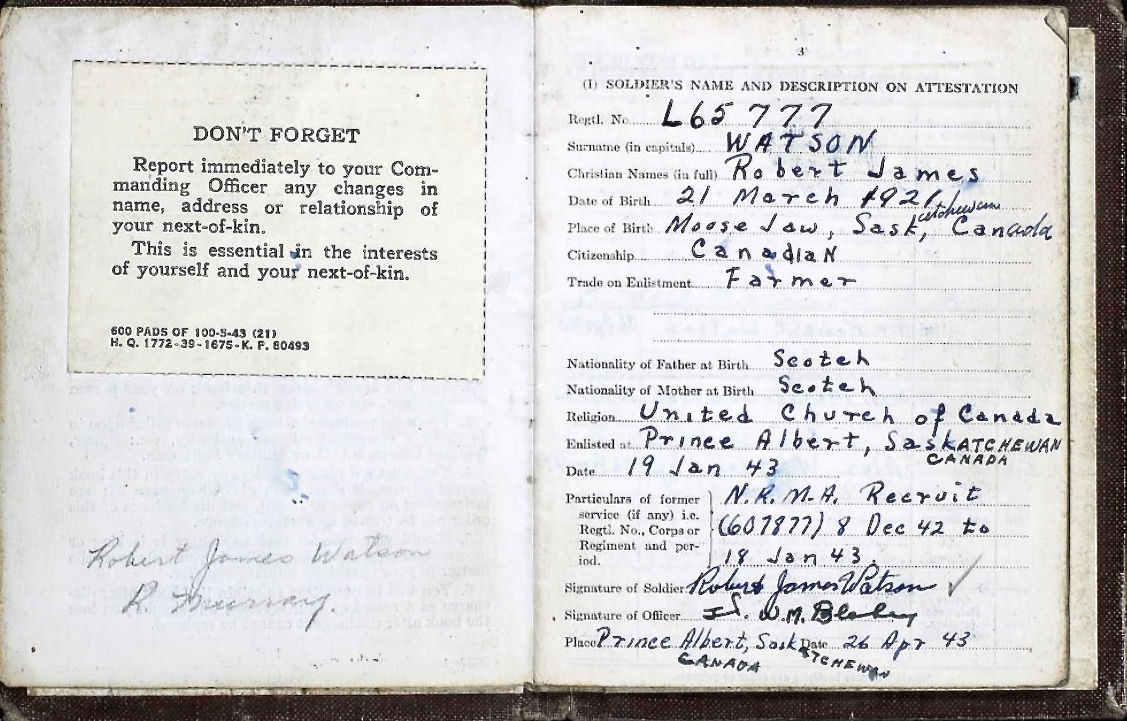 DON'T FORGET
Report immediately to your Com-
manding Officer any changes in
name, address or relationship of
your next-of-kin.
This is essential in the interests
of yourself and your next-of-kin.
600 PADS OF 100-5-43 (21)
H. Q. 1772-39-1675-K. P. 80493
Robert James Watson
R Murray.
3
(I) SOLDIER'S NAME AND DESCRIPTION ON ATTESTATION
Regtl. No. L65777
Surname (in capitals) WATSON
Christian Names (in full) Robert James
Date of Birth 21 March 1921
Place of Birth Moose Jaw, Saskatchewan, Canada
Citizenship Canadian
Trade on Enlistment Farmer
Nationality of Father at Birth Scotch
Nationality of Mother at Birth Scotch
Religion United Church of Canada
Enlisted at Prince Albert, SaskATCHEWAN
CANADA
Date 19 Jan 43
Particulars of former N.R.M.A. Recruit
service (if any) i.e.
Regtl. No., Corps or (607877) 8 Dec 42 to
Regiment and per-
iod. 18 Jan 43.
Signature of Soldier Robert James Watson
Signature of Officer W.M.
Place Prince Albert, SaskATCHEWAN Date 26 Apr 43
CANADA